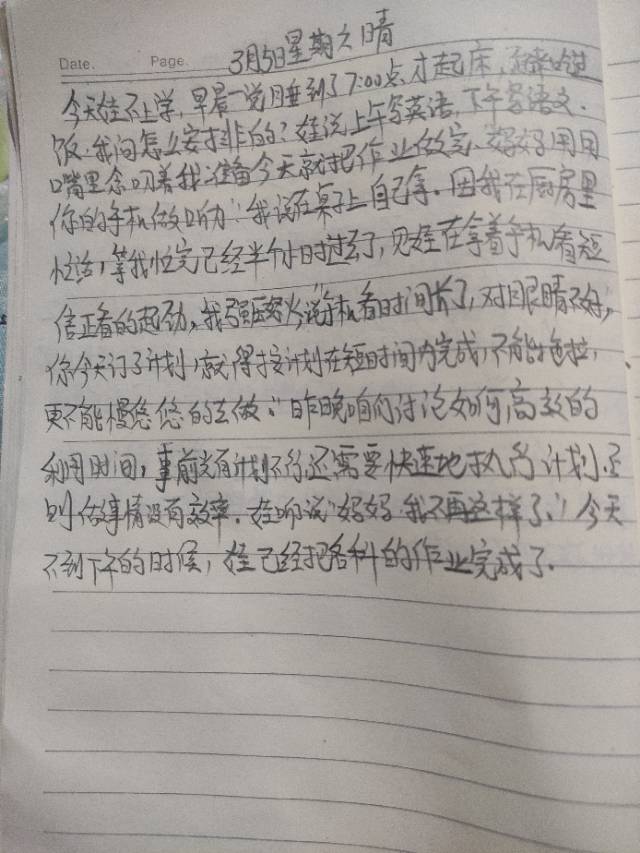 Date. Page. 3月5日星期六 晴
今天娃不上学,早晨一觉睡到了7:00点才起床,
饭.我问怎么安排的?娃说上午写英语,下午写语文.
嘴里念叨着我准备今天就把作业做完、妈妈用用
你的手机做听力".我说在桌子上自己拿.因我在厨房里
忙活,等我忙完已经半个小时过去了,见娃在拿着手机看短
信正看的起劲,我强压怒火,说手机看时间长了,对眼睛不好,
你今天订了计划,就得按计划在短时间内完成,不能拖拉,
更不能慢悠悠的去做."昨晚咱们讨论如何高效的
利用时间,事前光有计划不行,还需要快速地执行计划.否
则做事情没有效率.娃听说"妈妈我不再这样了."今天
不到下午的时候,娃已经把各科的作业完成了.